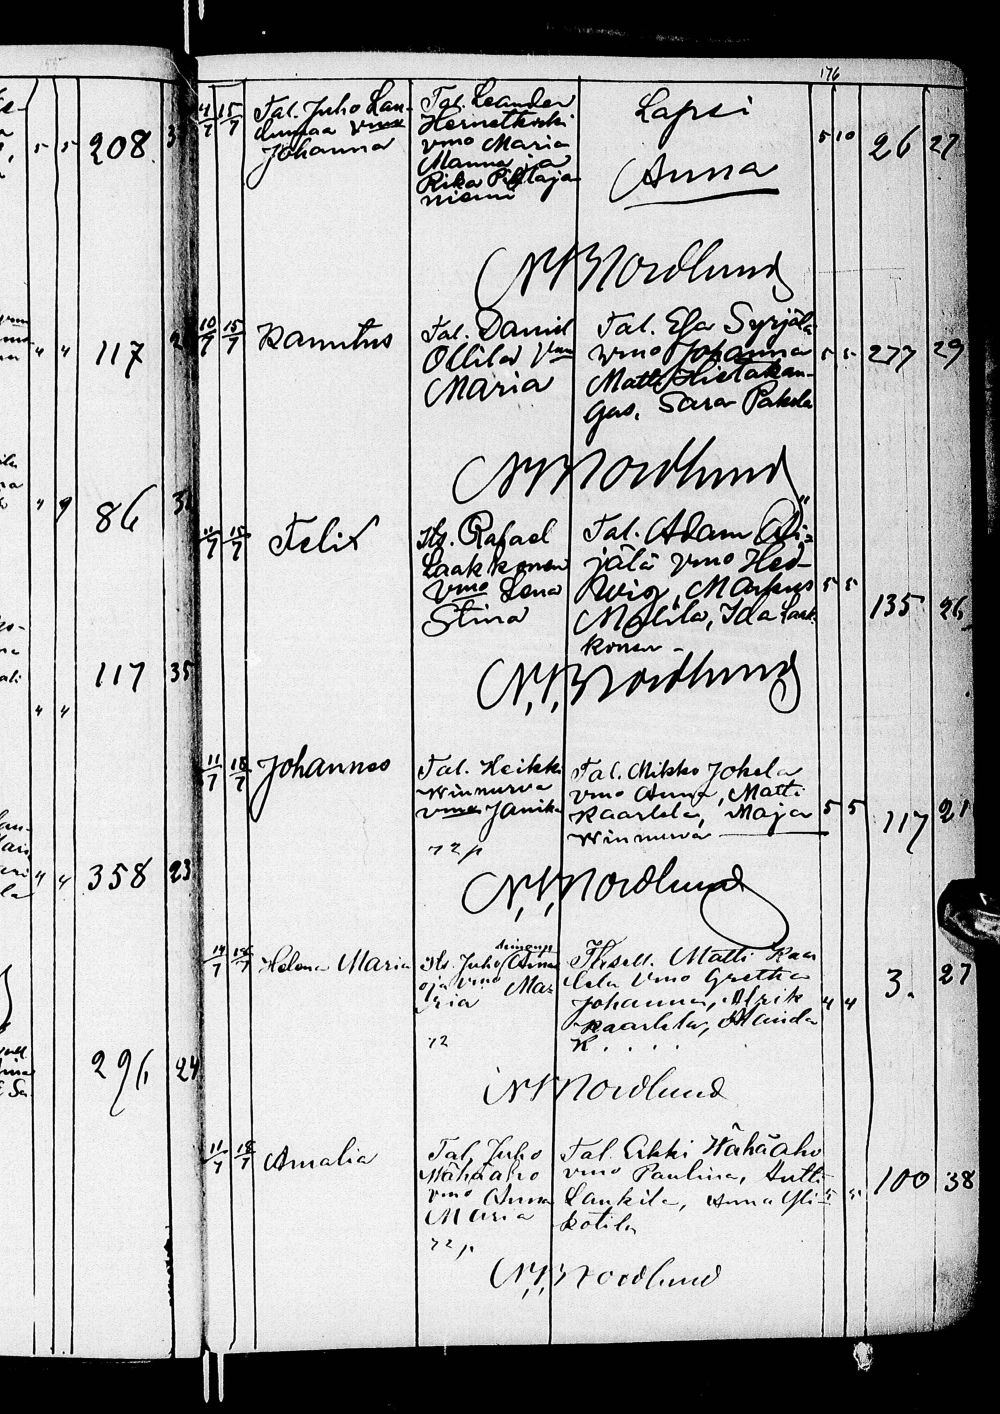 176
208
4/7 15/7 Tal. Juho Lan-
Vmo
Johanna
Tal. Leander
Hernetkoski
vmo Maria
Manna ja
Rika Pihlaja
niemi
Lapsi
Anna
5 10 26 27
Nordlund
117
10/7 15/7 Kanutus
Tal. Daniel
Ollila Vmo
Maria
Tal. Esa Syrjälä
vmo Johanna
Matti Hietakan-
gas, Sara Pakola
5 5 277 29
Nordlund
86
11/7 15/7 Felix
Its. Rafael
Laakkonen
Vmo Lena
Stina
Tal. Adam
jälä vmo Hed-
wig, Markus
Ida Laak-
konen
5 5 135 26
Nordlund
117 35
11/7 18/7 Johannes
Tal. Heikki
Winnurva
vmo
72 p
Tal. Mikko Jokela
vmo Anna, Matti
Kaarlela, Maja
Winnurva
5 5 117 21
Nordlund
358 23
14/7 18/7 Helena Maria
Its. Juho
oja vmo Ma-
ria
72
Matti Kaar
lela Vmo Gretha
Johanna, Alrik
Kaarlela, Wanda
K . . . .
4 4 3. 27
Nordlund
296 24
11/7 18/7 Amalia
Tal. Juho
Wähäaho
vmo Anna
Maria
72 p
Tal. Erkki Wähäaho
vmo Paulina, Antti
Lankila, Anna Yli-
kotila
5 5 100 38
Nordlund